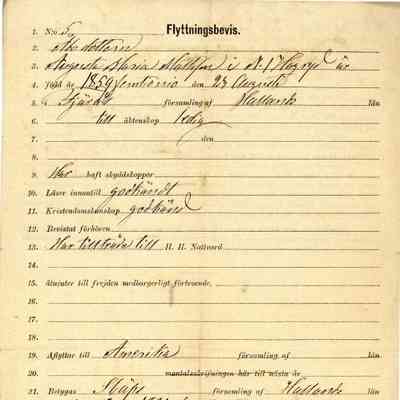 Flyttningsbevis.
1. N:o 5
2. Abr. dottern
3. Augusta Maria i N:1 är
4. född år 1859 den 28 Augusti
5. församling af Hallands län
6. till äktenskap ledig
7. den
8.
9. Har haft skyddskoppor
10. Läser innantill godkändt
11. Kristendomskunskap godkänd
12. Bevistat förhören
13. Har tillträde till H. H. Nattvard
14.
15. åtnjuter till frejden medborgerligt förtroende,
16.
17.
18.
19. Afflyttar till Amerika församling af län
20. mantalsskrifningen här till nästa år
21. Betygas Släps församling af Hallands län